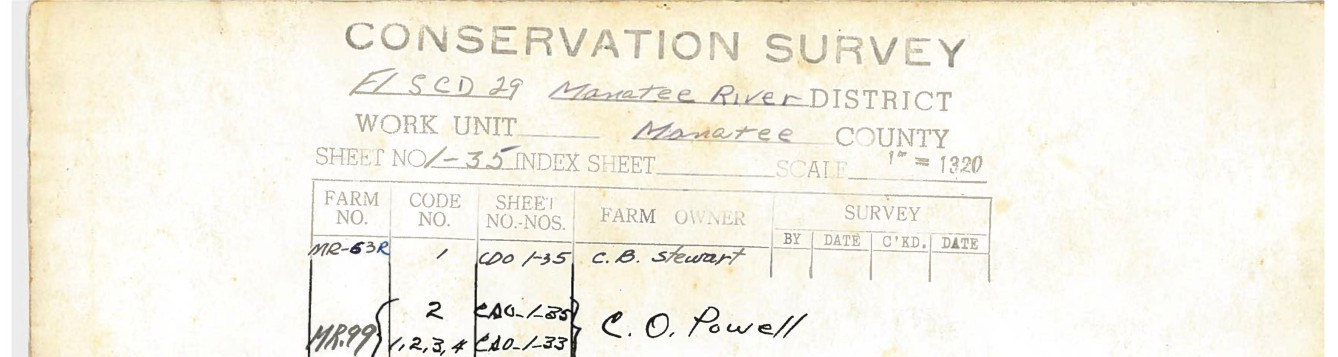 CONSERVATION SURVEY
Fl SCD 29 Manatee River DISTRICT
WORK UNIT Manatee COUNTY
SHEET NO 1-35 INDEX SHEET SCALE 1" = 1320
FARM NO. CODE NO. SHEET NO.-NOS. FARM OWNER SURVEY
BY DATE C'KD. DATE
MR-63R 1 CDO 1-35 C. B. Stewart
2 CAO-1-35
MR.99 C. O. Powell
1,2,3,4 CAO-1-33